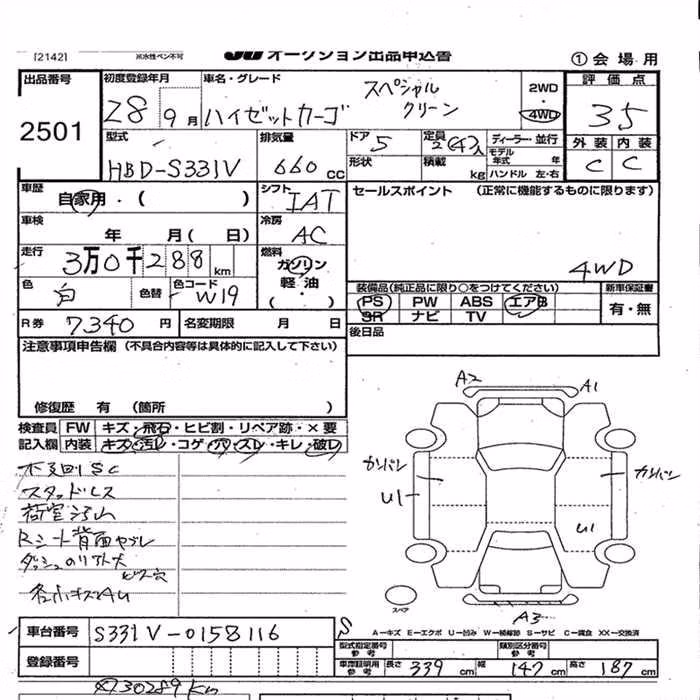 [2142] 水性ペン不可 JU オークション出品申込書 ①会場用
出品番号 初度登録年月 車名・グレード スペシャル クリーン 2WD 4WD 評価点
2501 28 9月 ハイゼットカーゴ 35
型式 排気量 ドア 定員 ディーラー・並行 外装 内装
HBD-S331V 660cc 5 2(4)人 モデル年式 年 C C
形状 積載 kg ハンドル 左・右
車歴 自家用・( ) シフト IAT セールスポイント (正常に機能するものに限ります)
車検 年 月( 日) 冷房 AC
走行 3万0千288km 燃料 ガソリン 軽油・( ) 4WD
色 白 色替 色コード W19 装備品(純正品に限り○をつけてください) 新車保証書
PS PW ABS エアB 有・無
SR ナビ TV
R券 7340円 名変期限 月 日 後日品
注意事項申告欄(不具合内容等は具体的に記入して下さい)
修復歴 有 (箇所 )
検査員 FW キズ・飛石・ヒビ割・リペア跡・×要
記入欄 内装 キズ・汚レ・コゲ・穴・スレ・キレ・破レ
A2 A1
カリバン カリバン
U1 U1
スタッドレス
荷室汚れ
Rシート背面ヤブレ
ビス穴
スペア
A3
S
A−キズ E−エクボ U−凹み W−補修跡 S−サビ C−腐食 XX−交換済
車台番号 S331V-0158116
型式指定番号 参考 類別区分番号 参考
登録番号 車庫証明用 参考 長さ 339cm 幅 147cm 高さ 187cm
30289km